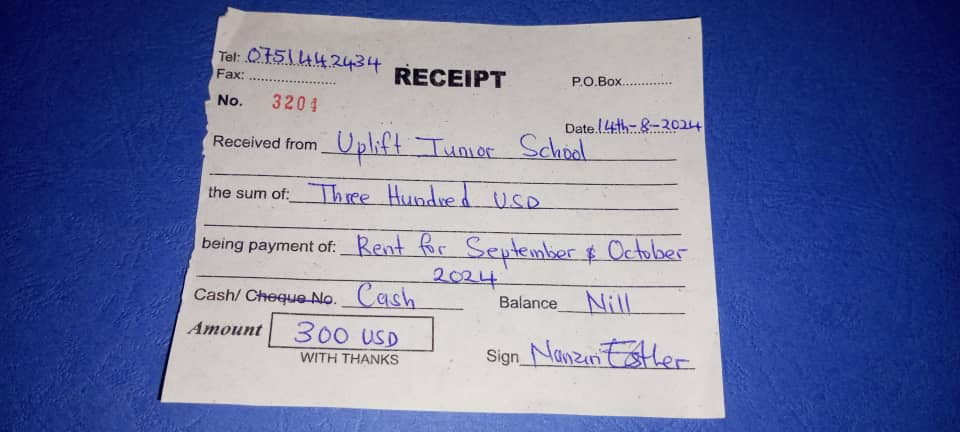 Tel: 0751442434
Fax: ........................
RECEIPT
P.O.Box.............
No. 3204
Date 14th-8-2024
Received from Uplift Junior School
the sum of: Three Hundred USD
being payment of: Rent for September & October
2024
Cash/ Cheque No. Cash
Balance Nill
Amount 300 USD
WITH THANKS
Sign Nanziri Esther